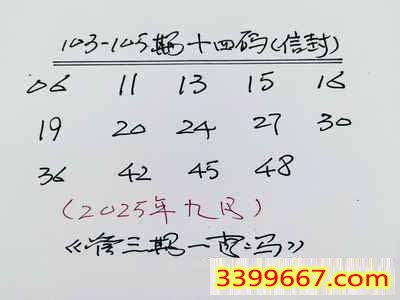 103-105期十四码(信封)
06 11 13 15 16
19 20 24 27 30
36 42 45 48
(2025年九月)
《三期一 码》
3399667.com